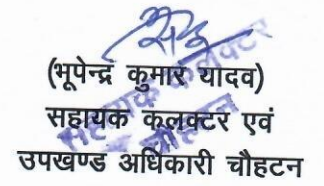 (भूपेन्द्र कुमार यादव)
सहायक कलक्टर एवं
उपखण्ड अधिकारी चौहटन
सहायक कलक्टर
चौहटन